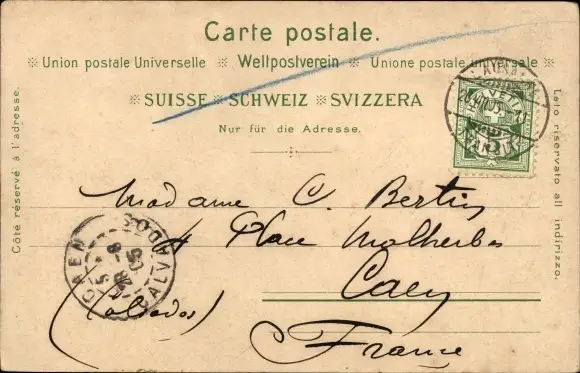 Carte postale.
Union postale Universelle Weltpostverein Unione postale universale
SUISSE SCHWEIZ SVIZZERA
Nur für die Adresse.
Côté réservé à l'adresse.
Lato riservato all indirizzo.
Madame C. Bertin
4 Place Malherbes
Caen
(Calvados)
France
CAEN
CALVADOS